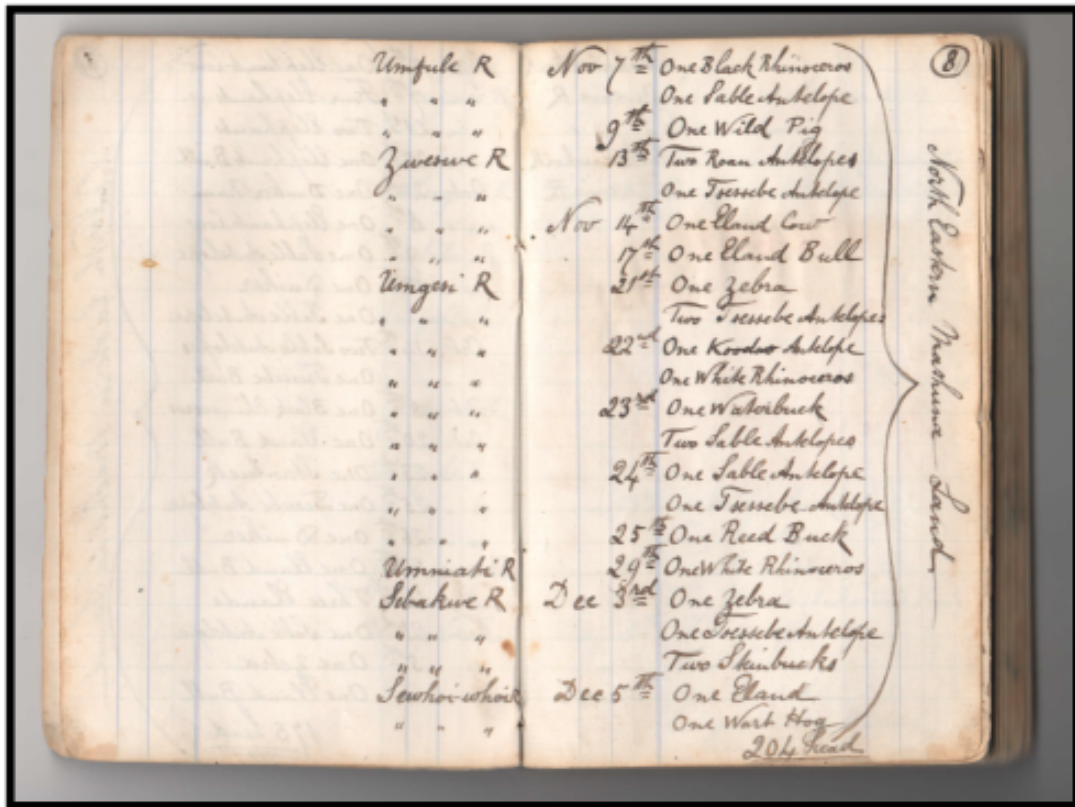 8
Umfule R Nov 7th One Black Rhinoceros
" " " One Sable Antelope
" " " 9th One Wild Pig
Zweswe R 13th Two Roan Antelopes
" " " One Tsessebe Antelope
" " " Nov 14th One Eland Cow
" " " 17th One Eland Bull
Umgesi R 21st One Zebra
" " " Two Tsessebe Antelopes
" " " 22nd One Koodoo Antelope
" " " One White Rhinoceros
" " " 23rd One Waterbuck
" " " Two Sable Antelopes
" " " 24th One Sable Antelope
" " " One Tsessebe Antelope
" " " 25th One Reed Buck
Umniati R 29th One White Rhinoceros
Sebakwe R Dec 3rd One Zebra
" " " One Tsessebe Antelope
" " " Two Steinbucks
Sewhoi-whoi R Dec 5th One Eland
" " " One Wart Hog
204 head
North Eastern Mashuna Land